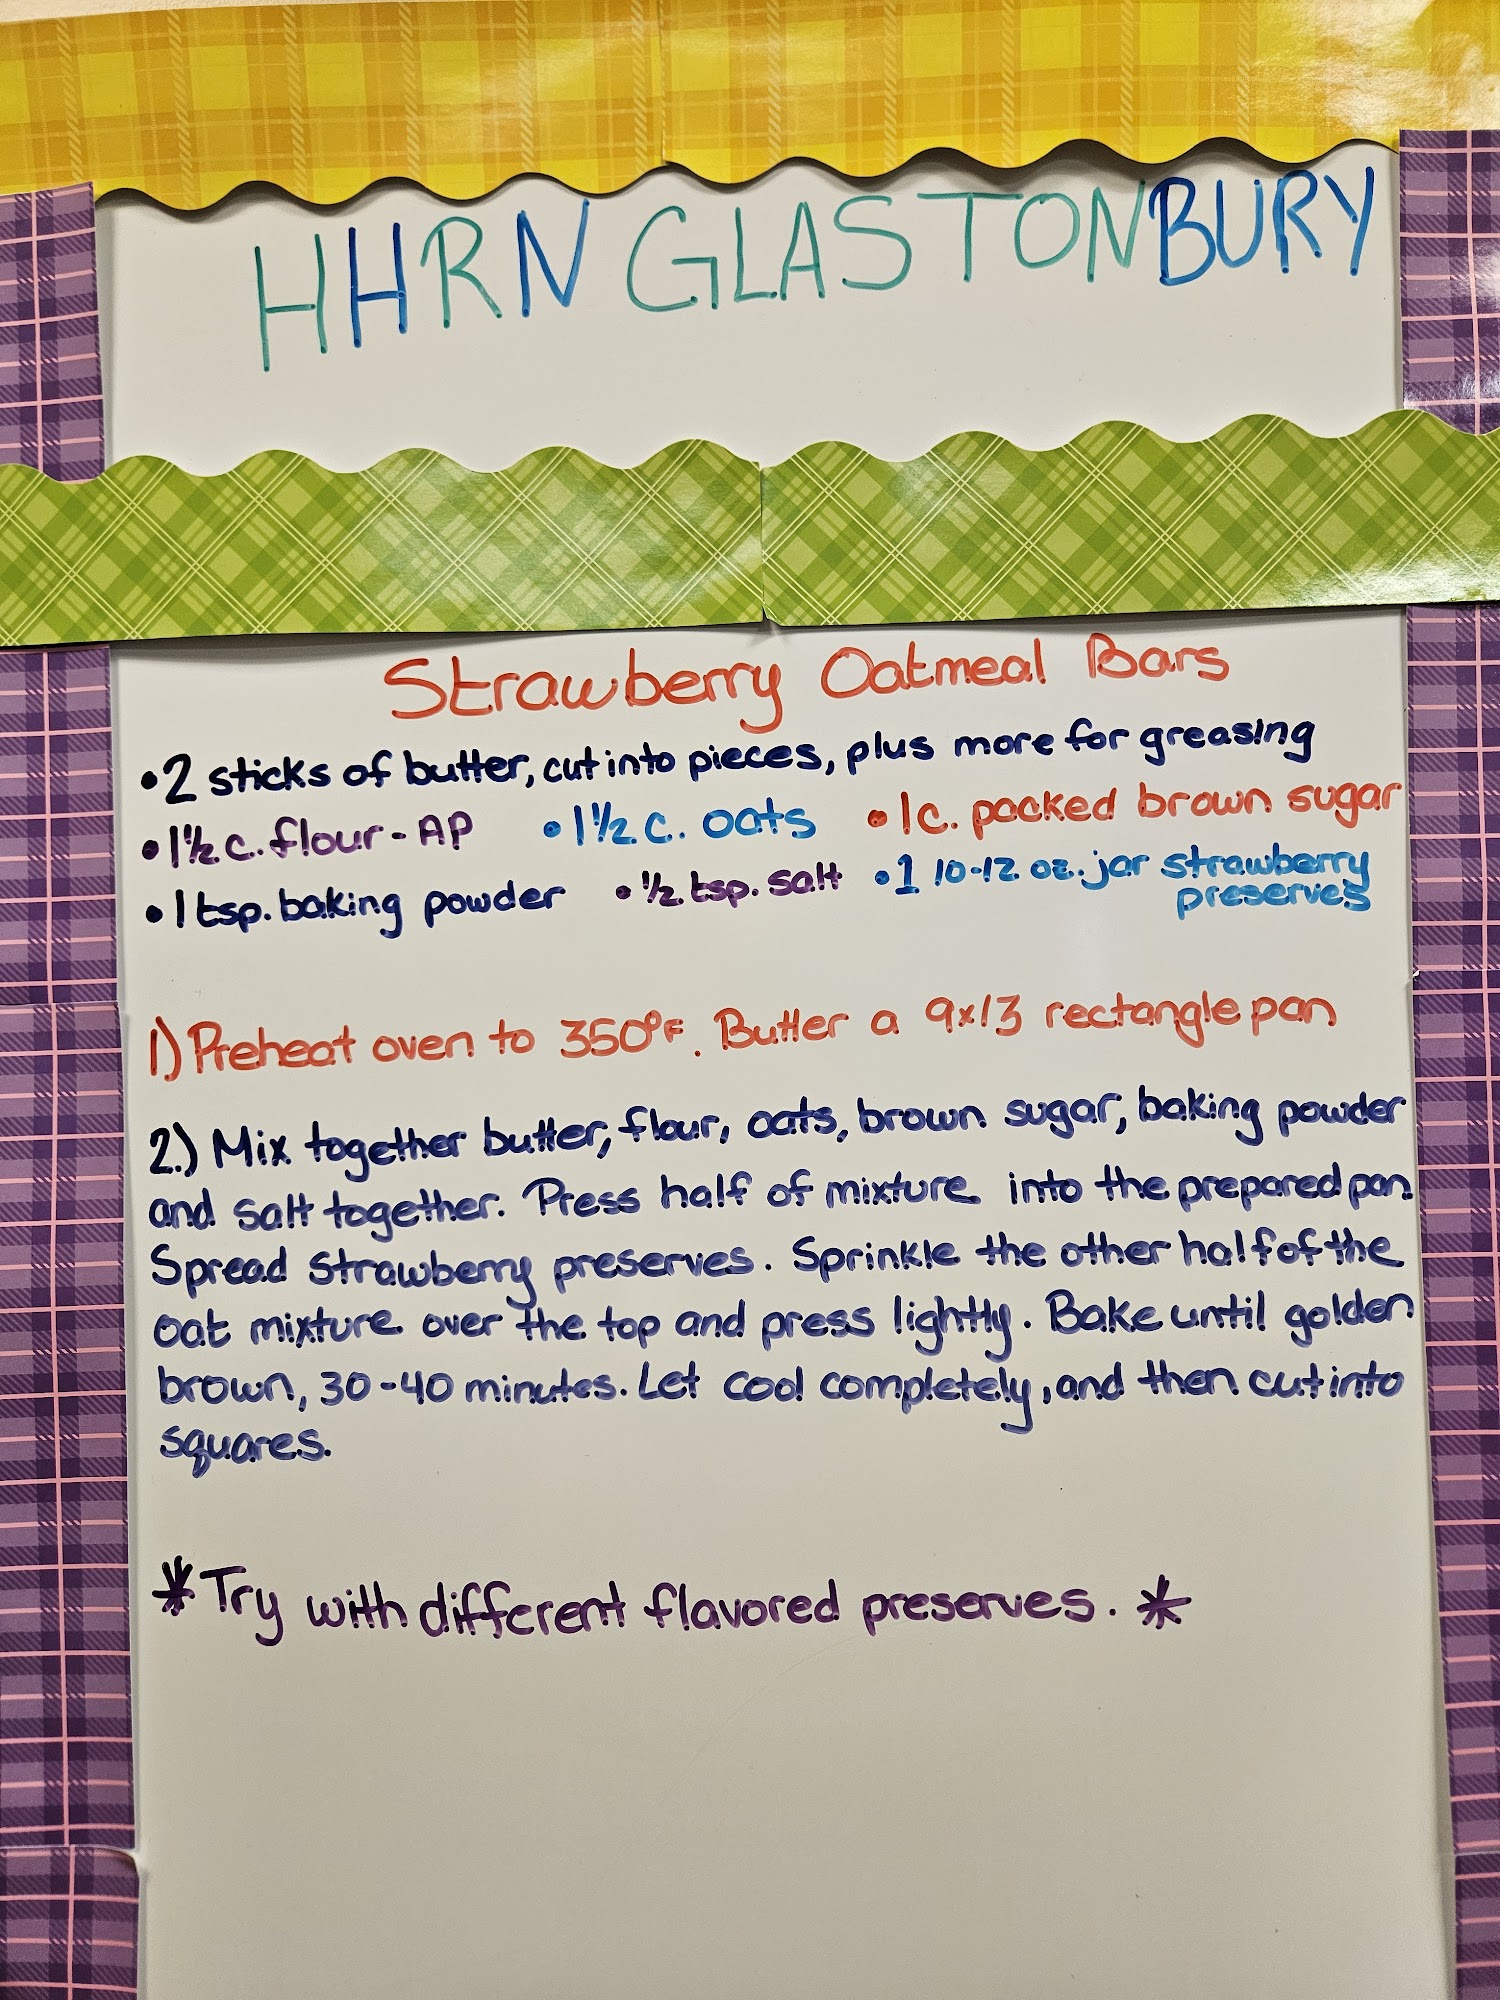 HHRN GLASTONBURY
Strawberry Oatmeal Bars
•2 sticks of butter, cut into pieces, plus more for greasing
•1½ c. flour - AP •1½ c. oats •1c. packed brown sugar
•1 tsp. baking powder •½ tsp. salt •1 10-12 oz. jar strawberry
preserves
1) Preheat oven to 350°F. Butter a 9x13 rectangle pan
2.) Mix together butter, flour, oats, brown sugar, baking powder
and salt together. Press half of mixture into the prepared pan.
Spread strawberry preserves. Sprinkle the other half of the
oat mixture over the top and press lightly. Bake until golden
brown, 30-40 minutes. Let cool completely, and then cut into
squares.
*Try with different flavored preserves. *